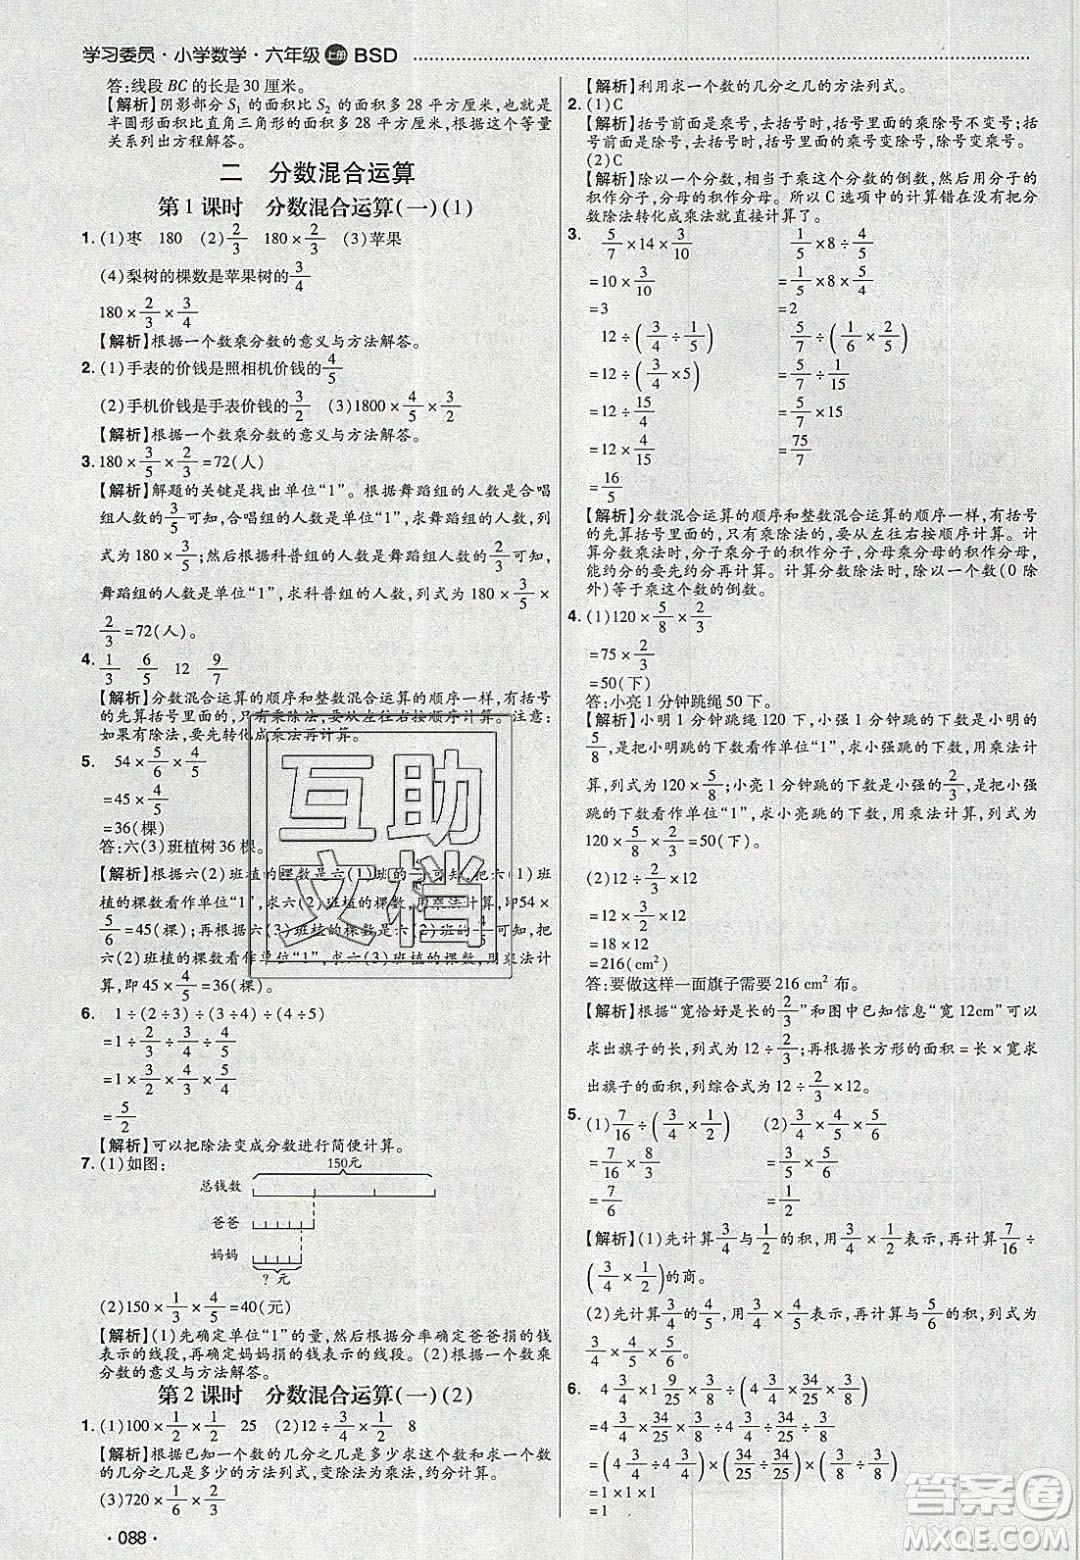 学习委员·小学数学·六年级 上册 BSD
答:线段 BC 的长是 30 厘米。
【解析】阴影部分 S₁ 的面积比 S₂ 的面积多 28 平方厘米,也就是
半圆形面积比直角三角形的面积多 28 平方厘米,根据这个等量
关系列出方程解答。
二 分数混合运算
第 1 课时 分数混合运算(一)(1)
1. (1)枣 180 (2)2/3 180×2/3 (3)苹果
(4)梨树的棵数是苹果树的3/4
180×2/3×3/4
【解析】根据一个数乘分数的意义与方法解答。
2. (1)手表的价钱是照相机价钱的4/5
(2)手机价钱是手表价钱的3/2 (3)1800×4/5×3/2
【解析】根据一个数乘分数的意义与方法解答。
3. 180×3/5×2/3=72(人)
【解析】解题的关键是找出单位“1”。根据舞蹈组的人数是合唱
组人数的3/5可知,合唱组的人数是单位“1”,求舞蹈组的人数,列
式为 180×3/5;然后根据科普组的人数是舞蹈组人数的2/3可知,
舞蹈组的人数是单位“1”,求科普组的人数,列式为 180×3/5×
2/3=72(人)。
4. 1/3 6/5 12 9/7
【解析】分数混合运算的顺序和整数混合运算的顺序一样,有括号
的先算括号里面的,只有乘除法,要从左往右按顺序计算。注意:
如果有除法,要先转化成乘法再计算。
5. 54×5/6×4/5
=45×4/5
=36(棵)
答:六(3)班植树 36 棵。
【解析】根据六(2)班植的棵数是六(1)班植的5/6可知,把六(1)班
植的棵数看作单位“1”,求六(2)班植的棵数,用乘法计算,即54×
5/6=45(棵);然后根据六(3)班植的棵数是六(2)班的4/5可知,把六
(2)班植的棵数看作单位“1”,求六(3)班植的棵数,用乘法计
算,即 45×4/5=36(棵)。
6. 1÷(2÷3)÷(3÷4)÷(4÷5)
=1÷2/3÷3/4÷4/5
=1×3/2×4/3×5/4
=5/2
【解析】可以把除法变成分数进行简便计算。
7. (1)如图:
150元
总钱数
爸爸
妈妈
? 元
(2)150×1/3×4/5=40(元)
【解析】(1)先确定单位“1”的量,然后根据分率确定爸爸捐的钱
表示的线段,再确定妈妈捐的钱表示的线段。(2)根据一个数乘
分数的意义与方法解答。
第 2 课时 分数混合运算(一)(2)
1. (1)100×1/2×1/2 25 (2)12÷3/4×1/2 8
【解析】根据已知一个数的几分之几是多少求这个数和求一个数
的几分之几是多少的方法列式,变除法为乘法,约分计算。
(3)720×1/6×2/3
·088·
【解析】利用求一个数的几分之几的方法列式。
2. (1)C
【解析】括号前面是乘号,去括号时,括号里面的乘除号不变号;括
号前面是除号,去括号时,括号里面的乘号变除号,除号变乘号。
(2)C
【解析】除以一个分数,相当于乘这个分数的倒数,然后用分子的
积作分子,分母的积作分母。所以 C 选项中的计算错在没有把分
数除法转化成乘法就直接计算了。
3. 5/7×14×3/10 1/5×8÷4/5
=10×3/10 =1/5×8×5/4
=3 =2
12÷(3/4÷1/5) 5/7÷(1/6×2/5)
=12÷(3/4×5) =5/7÷1/15
=12÷15/4 =5/7×15
=12×4/15 =75/7
=16/5
【解析】分数混合运算的顺序和整数混合运算的顺序一样,有括号
的先算括号里面的,只有乘除法的,要从左往右按顺序计算。计
算分数乘法时,分子乘分子的积作分子,分母乘分母的积作分母,
能约分的要先约分再计算。计算分数除法时,除以一个数(0 除
外)等于乘这个数的倒数。
4. (1)120×5/8×2/3
=75×2/3
=50(下)
答:小亮 1 分钟跳绳 50 下。
【解析】小明 1 分钟跳绳 120 下,小强 1 分钟跳的下数是小明的
5/8,是把小明跳的下数看作单位“1”,求小强跳的下数,用乘法计
算,列式为 120×5/8;小亮 1 分钟跳的下数是小强的2/3,是把小强
跳的下数看作单位“1”,求小亮跳的下数,用乘法计算,列式为
120×5/8×2/3=50(下)。
(2)12÷2/3×12
=12×3/2×12
=18×12
=216(cm²)
答:要做这样一面旗子需要 216 cm² 布。
【解析】根据“宽恰好是长的2/3”和图中已知信息“宽 12cm”可以
求出旗子的长,列式为 12÷2/3;再根据长方形的面积=长×宽求
出旗子的面积,列综合式为 12÷2/3×12。
5. (1)7/16÷(3/4×1/2) (2)3/4×4/5×5/6
=7/16×8/3 =3/5×5/6
=7/6 =1/2
【解析】(1)先计算3/4与1/2的积,用3/4×1/2表示,再计算7/16÷
(3/4×1/2)的商。
(2)先计算3/4的4/5,用3/4×4/5表示,再计算5/6的积,列式为
3/4×4/5×5/6。
6. 4 3/4×1 9/25×34/25÷(4 3/4×34/25×34/25)
=4 3/4×34/25×34/25÷4 3/4÷34/25÷34/25
=(4 3/4÷4 3/4)×(34/25÷34/25)×(34/25÷34/25)
=1×1×1
=1
互助
文档
答案圈
MXQE.COM